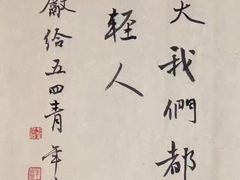 大我們都
輕人
獻給五四青年